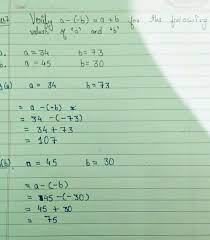 Verify a-(-b) = a+b for the following
values of 'a' and 'b'
a = 34 b = 73
a = 45 b = 30
(a) a = 34 b = 73
= a-(-b)
= 34 -(-73)
= 34 + 73
= 107
(b) a = 45 b = 30
= a-(-b)
= 45-(-30)
= 45 + 30
= 75